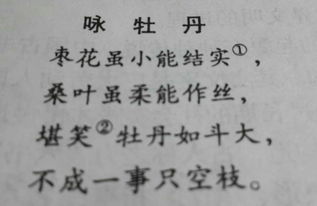 咏牡丹
枣花虽小能结实①，
桑叶虽柔能作丝，
堪笑②牡丹如斗大，
不成一事只空枝。